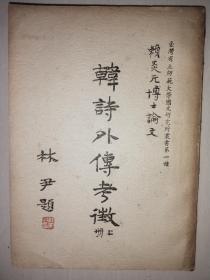 臺灣省立師範大學國文研究所叢書第一種
賴炎元博士論文
韓詩外傳考徵
上冊
林尹題